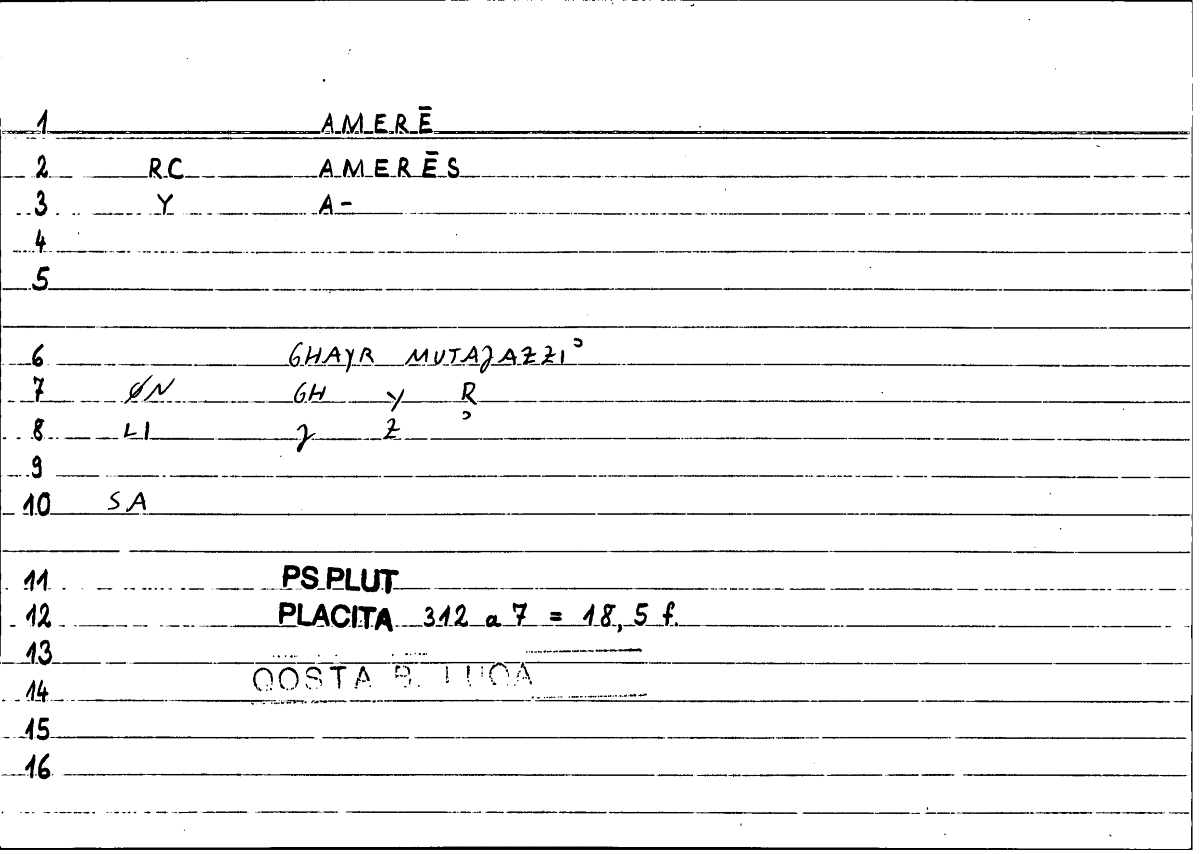 1 AMERĒ
2 RC AMERĒS
3 Y A-
4
5
6 GHAYR MUTAJAZZIʾ
7 ØN GH Y R
8 LI J Z ʾ
9
10 SA
11 PS.PLUT
12 PLACITA 312 a 7 = 18,5 f.
13
QOSTA B. LUQA
14
15
16